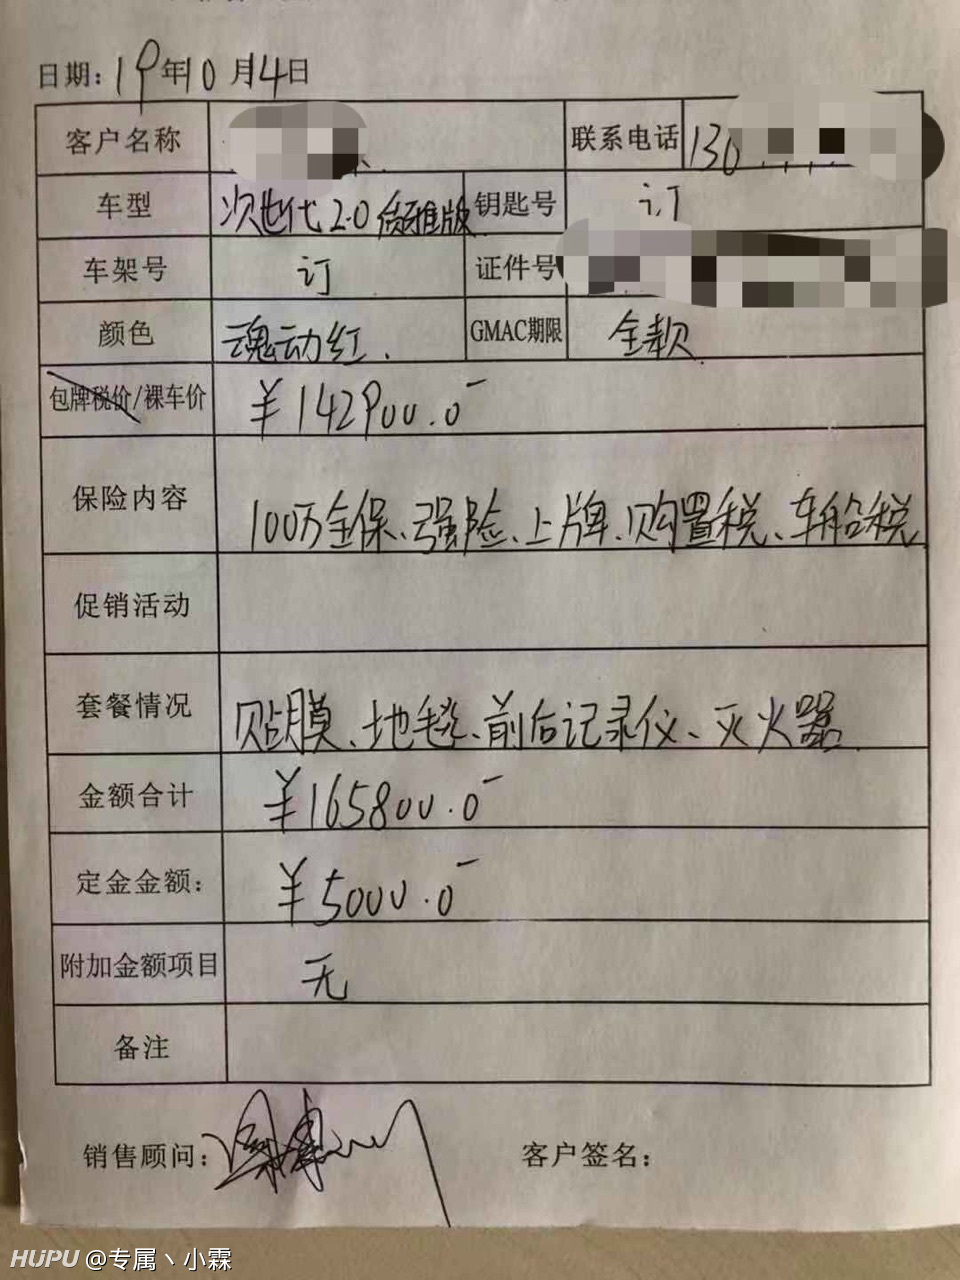 日期：19年10月4日
客户名称 联系电话 130
车型 次世代2.0质雅版 钥匙号 订
车架号 订 证件号
颜色 魂动红. GMAC期限 全款
包牌税价/裸车价 ¥142900.0
保险内容 100万全保、强险、上牌、购置税、车船税
促销活动
套餐情况 贴膜、地毯、前后记录仪、灭火器
金额合计 ¥165800.0
定金金额： ¥5000.0
附加金额项目 无
备注
销售顾问： 客户签名：
HUPU @专属丶小霖